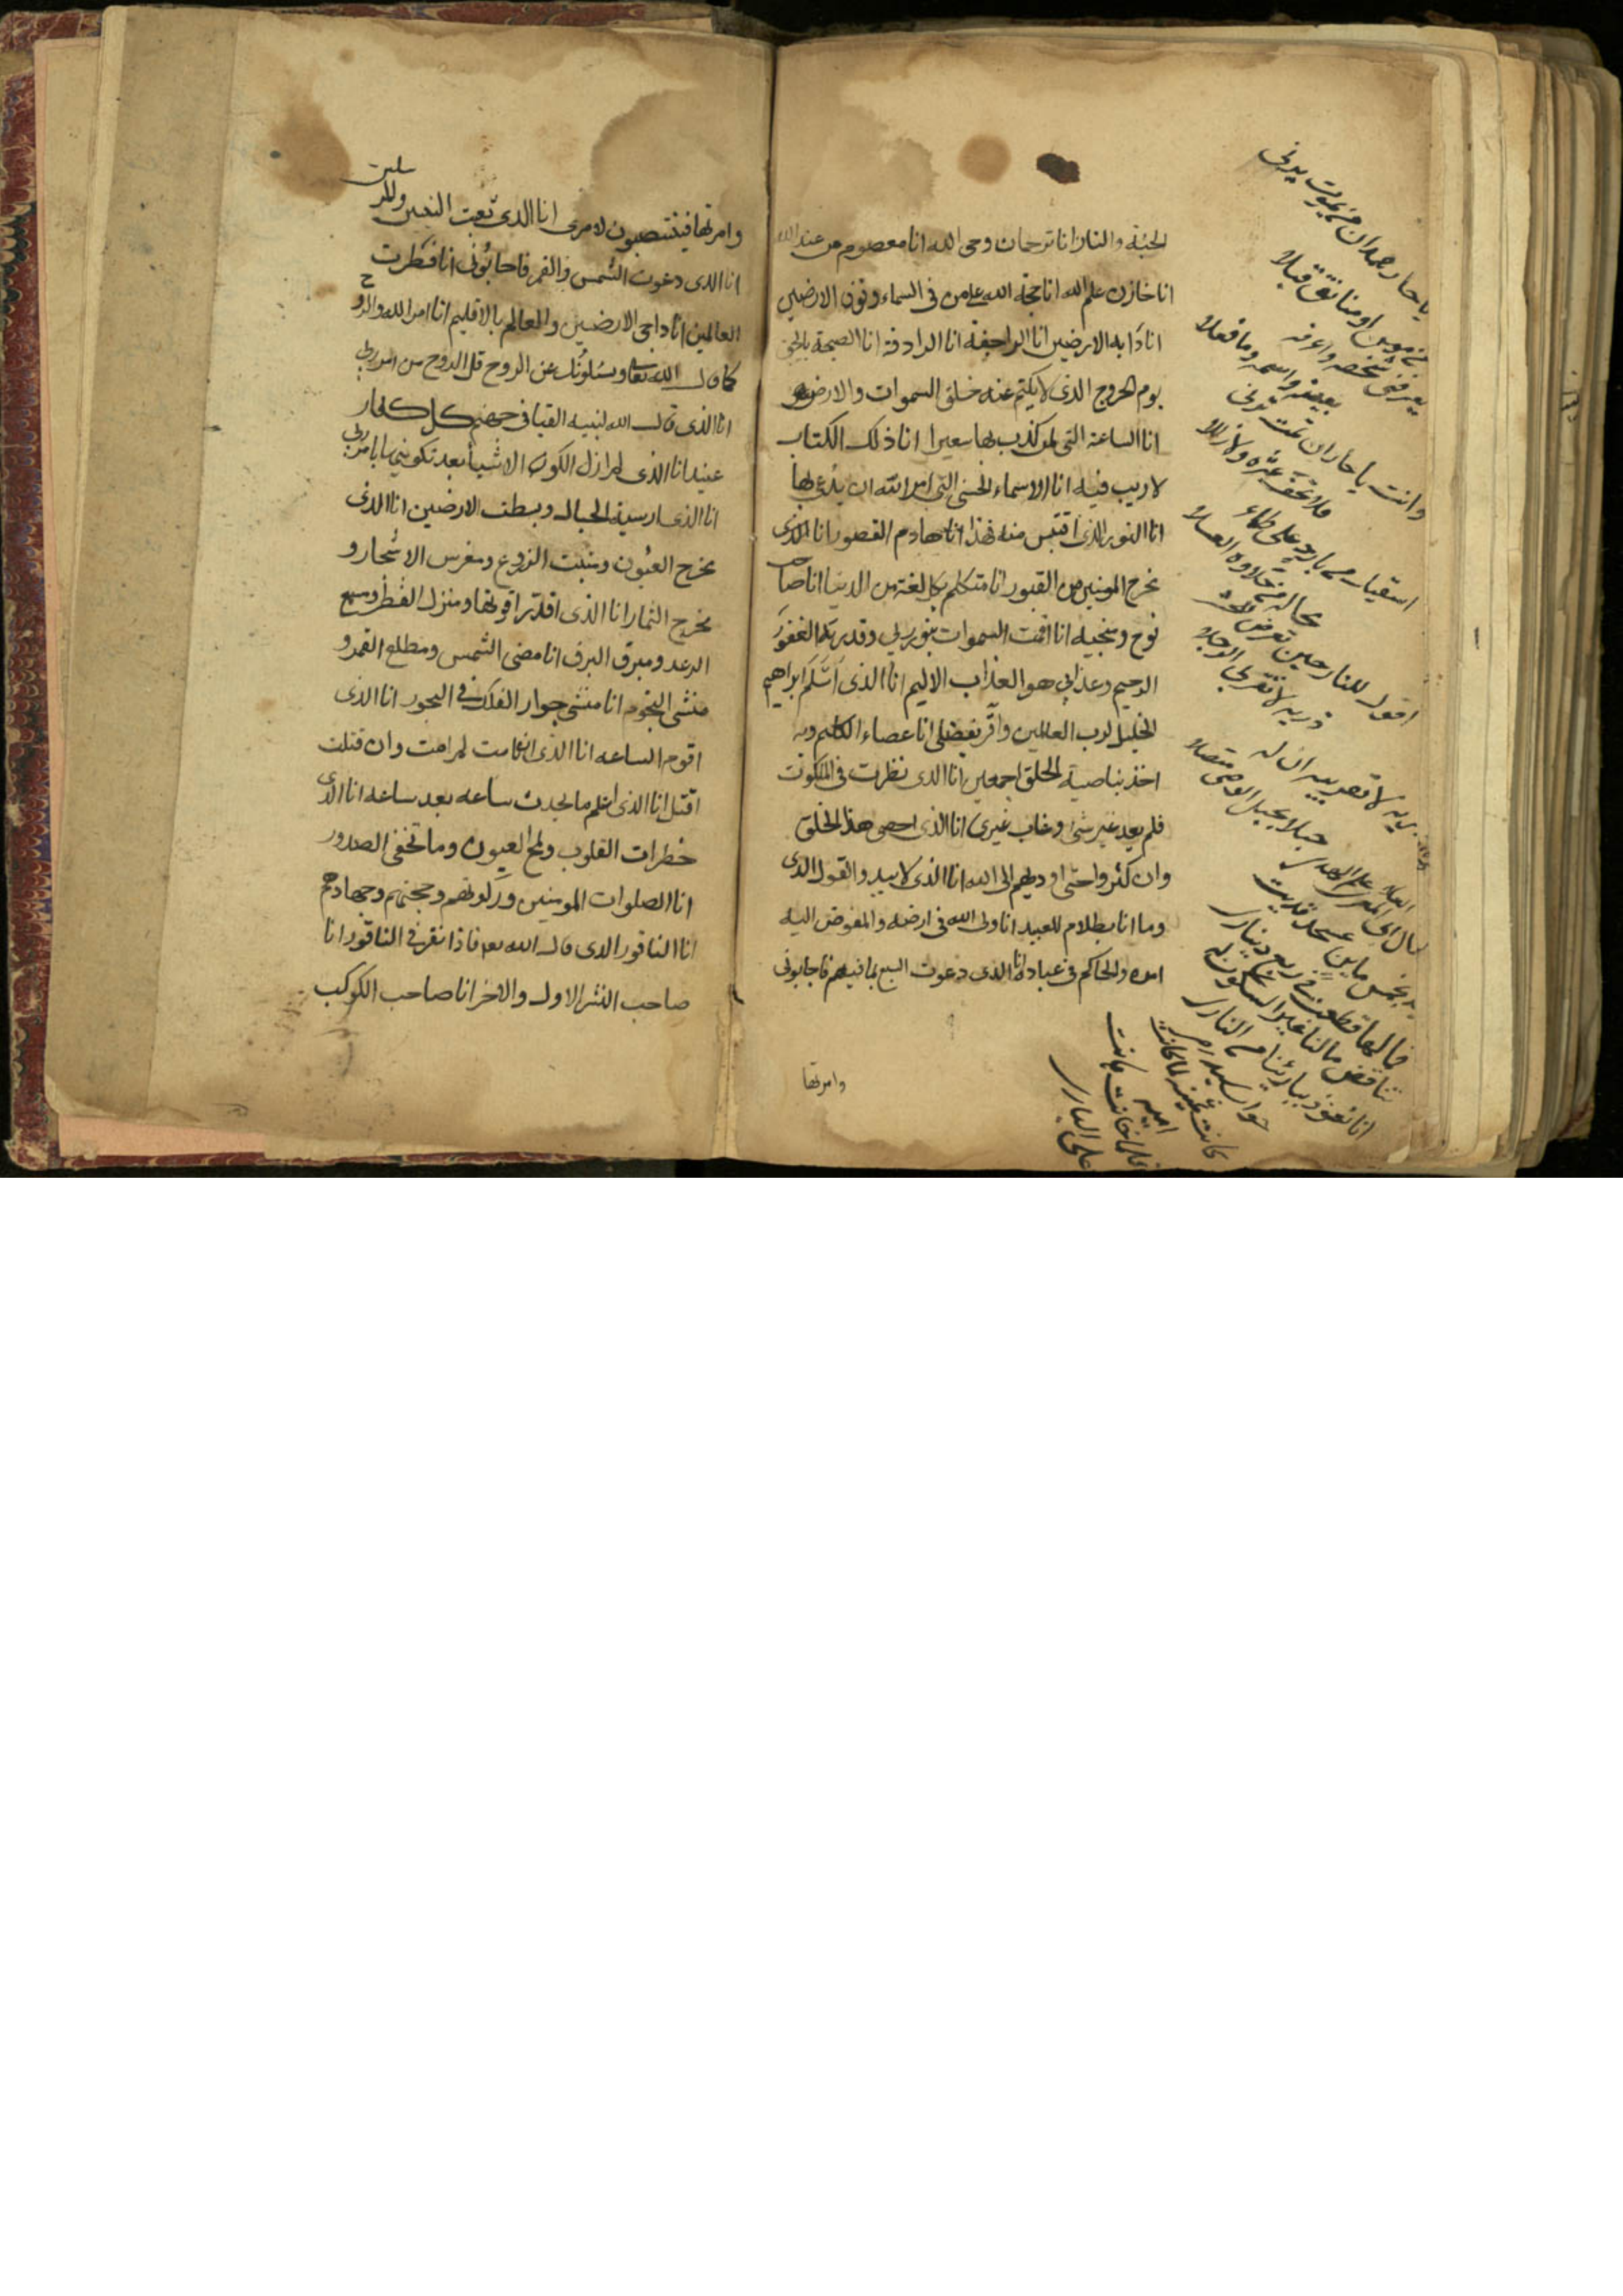 الجنة والنار انا ترجمان وحى الله انا معصوم من عند الله
انا خازن علم الله انا حجة الله على من فى السماء وفوق الارضين
انا دابه الارضين انا الراجفة انا الرادفة انا الصيحة بالحق
يوم الخروج الذى لا يكتم عنه خلق السموات والارض
انا الساعة التى لمن كذب بها سعيرا انا ذلك الكتاب
لا ريب فيه انا الاسماء الحسنى التى امر الله ان يدعى بها
انا النور الذى اقتبس منه فهذا انا هادم القصور انا الذى
نخرج المومنين من القبور انا متكلم بكل لغة من الدنيا انا صاحب
نوح ومنجيه انا اقمت السموات بنور ربى وقدرته انا الغفور
الرحيم وعذابى هو العذاب الاليم انا الذى اسلم ابراهيم
الخليل لرب العالمين واقر بفضلى انا عصاء الكليم وبه
اخذ بناصية الخلق اجمعين انا الذى نظرت فى الملكوت
فلم يعد غير شئ وغاب غيرى انا الذى احصى هذا الخلق
وان كثروا حتى اوديهم الى الله انا الذى لا يبدو القول الذى
وما انا بظلام للعبيد انا ولى الله فى ارضه والمفوض اليه
امره والحاكم فى عباده انا الذى دعوت السبع بما فيهم فاجابونى
وامرتها
يا حار همدان من يمت يرنى
من مومن او منافق قبلا
يعرفنى شخصه واعرفه
بعينه واسمه وما فعلا
وانت يا حار ان تمت ترنى
فلا تخف عثرة ولا زللا
اسقيك من بارد على ظماء
تخاله فى حلاوة العسلا
اقول للنار حين تعرض
ذريه لا تقربى الرجلا
ذريه لا تقربيه ان له
حبلا بحبل الوصى متصلا
وامرتها فينتصبون لامرى انا الذى بعثت النبيين والمرسلين
انا الذى دعوت الشمس والقمر فاجابونى انا فطرت
العالمين انا داحى الارضين والعالم بالاقليم انا امر الله والروح
كما قال الله تعالى ويسئلونك عن الروح قل الروح من امر ربى
انا الذى قال الله لنبيه القيا فى جهنم كل كفار
عنيد انا الذى لم ازل الكون الاشيا بعد تكوينى بامر ربى
انا الذى ارسيت الجبال وبسطت الارضين انا الذى
مخرج العيون ومنبت الزروع ومغرس الاشجار و
مخرج الثمار انا الذى اقدر اقواتها ومنزل القطر ومسمع
الرعد ومبرق البرق انا مضى الشمس ومطلع القمر و
منشى النجوم انا منشى جوار الفلك فى البحور انا الذى
اقوم الساعه انا الذى ان امت لم امت وان قتلت
اقتل انا الذى اعلم ما يحدث ساعه بعد ساعه انا الذى
خطرات القلوب ولمح العيون وما تخفى الصدور
انا الصلوات المومنين وزكوتهم وحجتهم وجهادهم
انا الناقور الذى قال الله تعه فاذا نقر فى الناقور انا
صاحب النشر الاول والاخر انا صاحب الكوكب